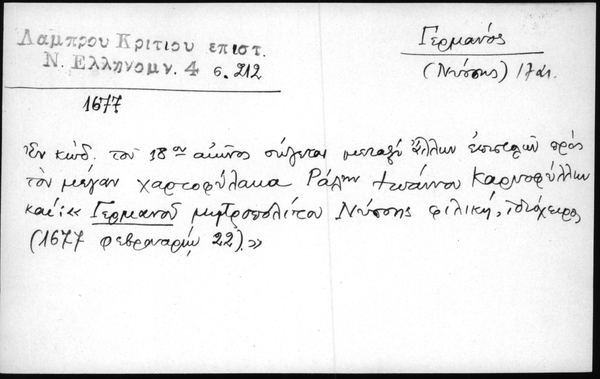 Λαμπρου Κριτιου επιστ.
Ν. Ελληνομν. 4 σ. 212
Γερμανός
(Νύσσης) 17 αι.
1677
Ἐν κώδ. τοῦ 18ου αἰῶνος σώζεται μεταξὺ ἄλλων ἐπιστολῶν πρὸς
τὸν μέγαν χαρτοφύλακα Ῥάλην Ἰωάννου Καρυοφύλλη
καὶ: « Γερμανοῦ μητροπολίτου Νύσσης φιλική, ἰδιόχειρος
(1677 φεβρουαρίῳ 22). »